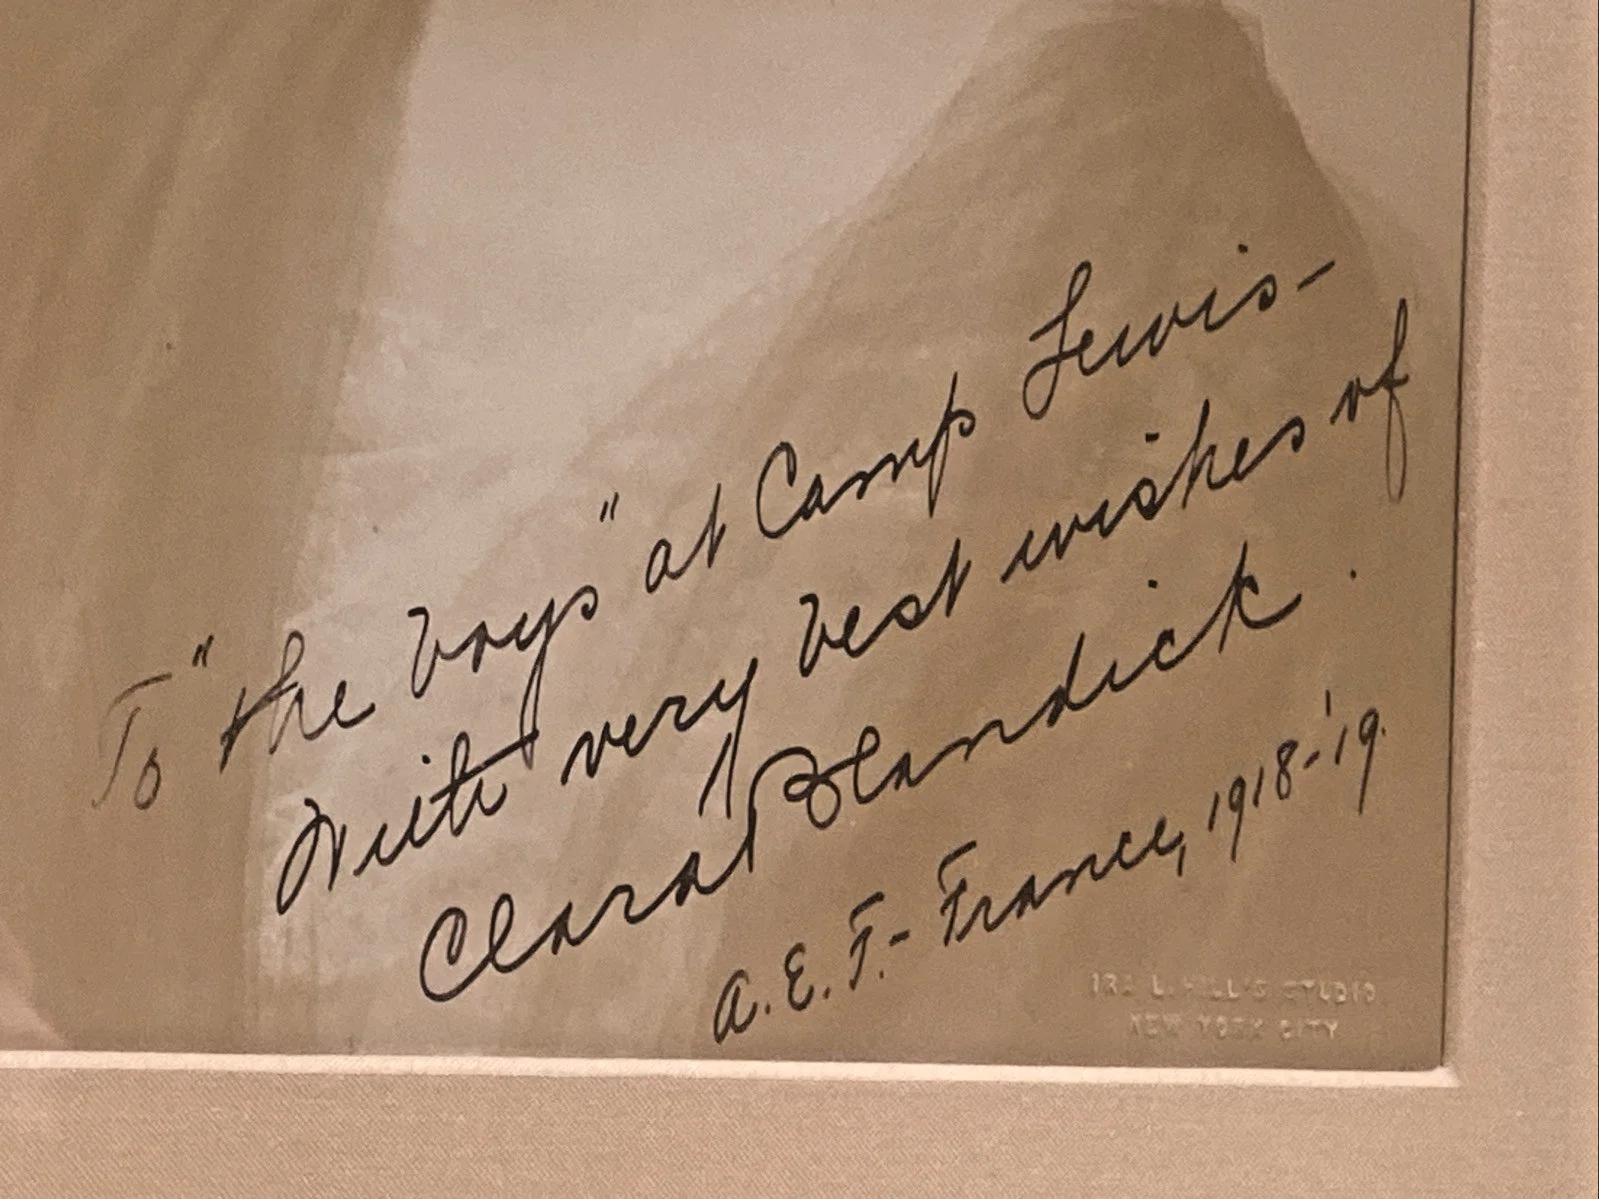 To "the boys" at Camp Lewis-
With very best wishes of
Clara Blandick.
A.E.F.- France, 1918-'19.
IRA L. HILL'S STUDIO
NEW YORK CITY